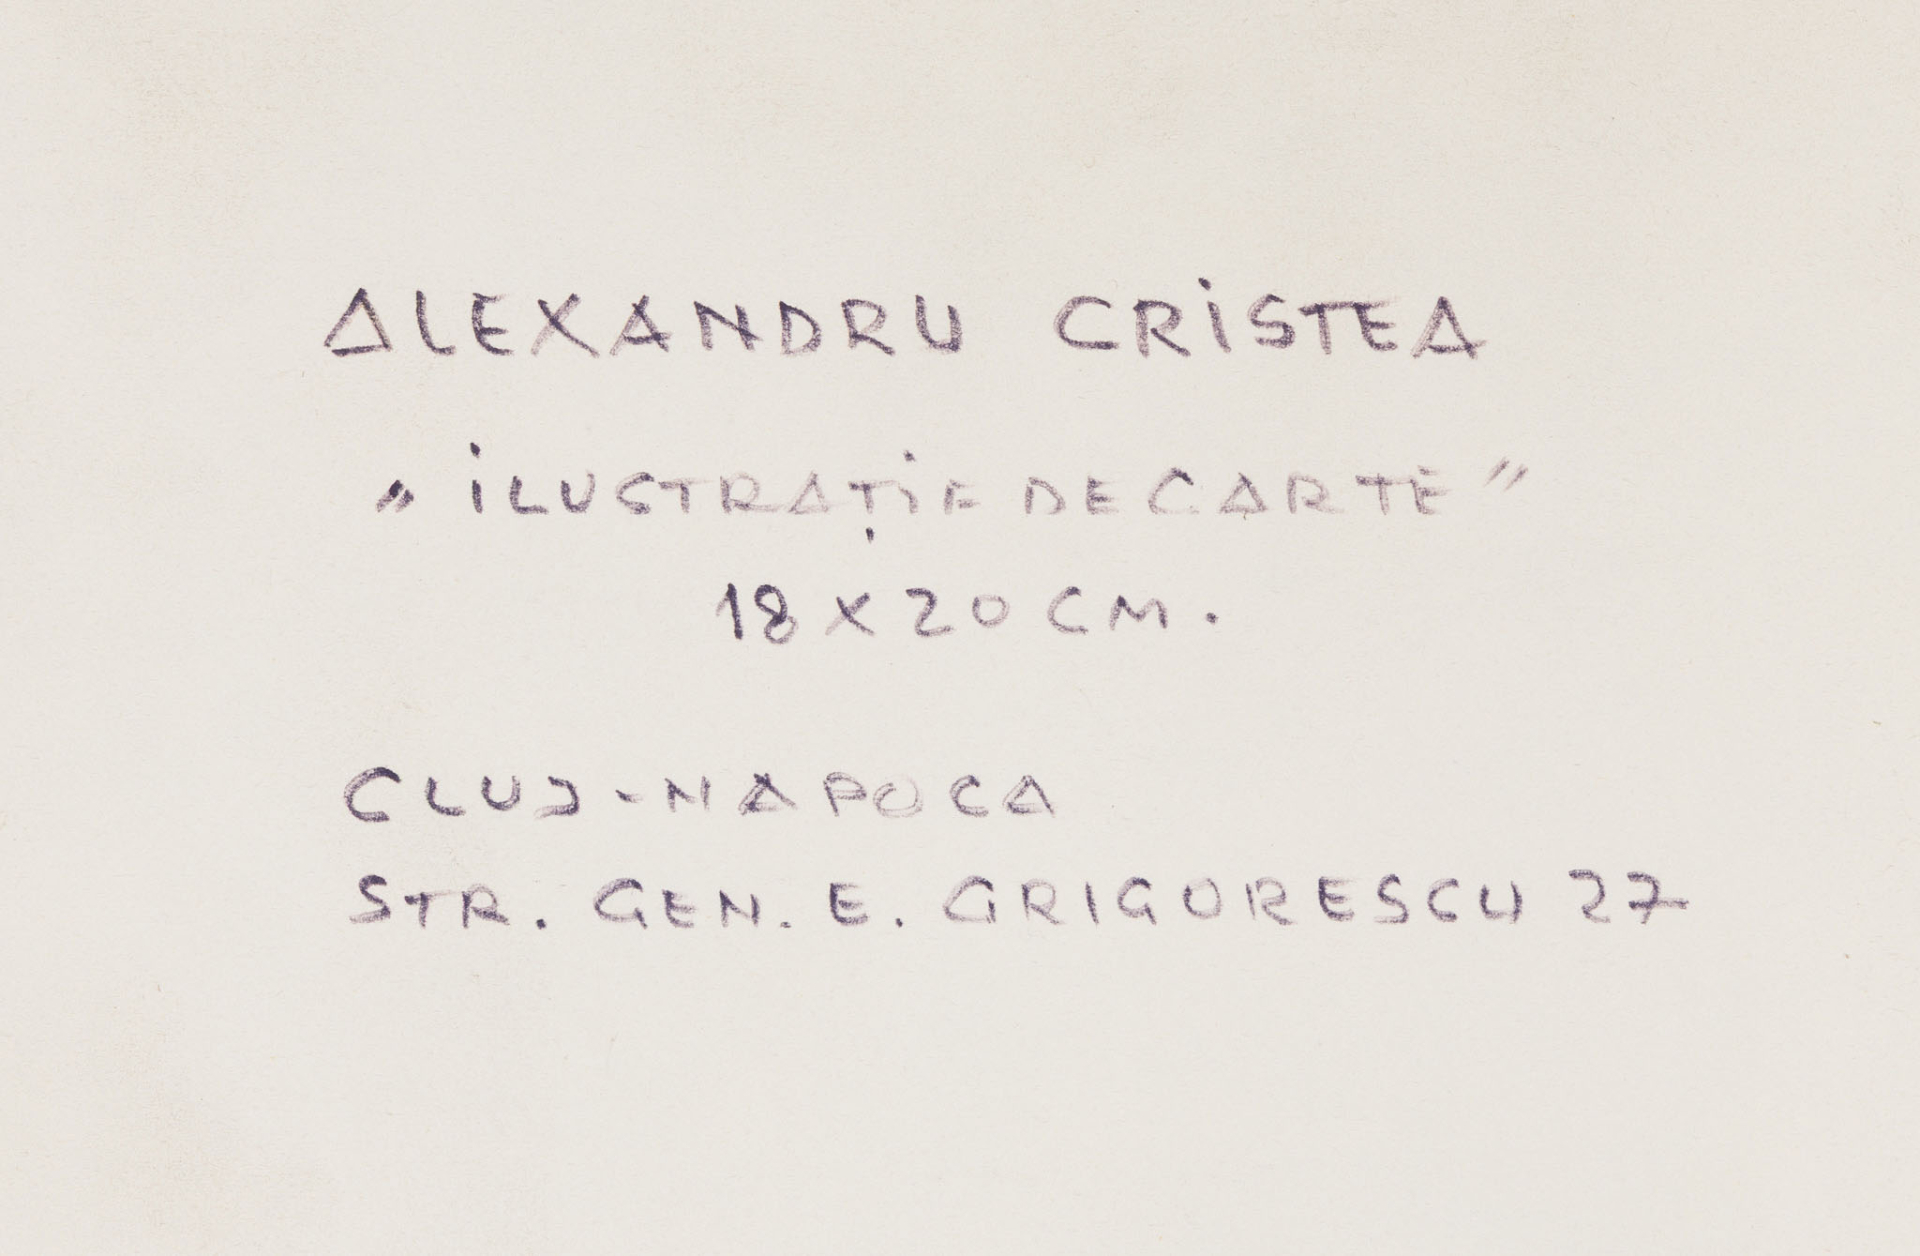 ALEXANDRU CRISTEA
„ ILUSTRAȚIE DE CARTE ”
18 X 20 CM.
CLUJ-NAPOCA
STR. GEN. E. GRIGORESCU 27